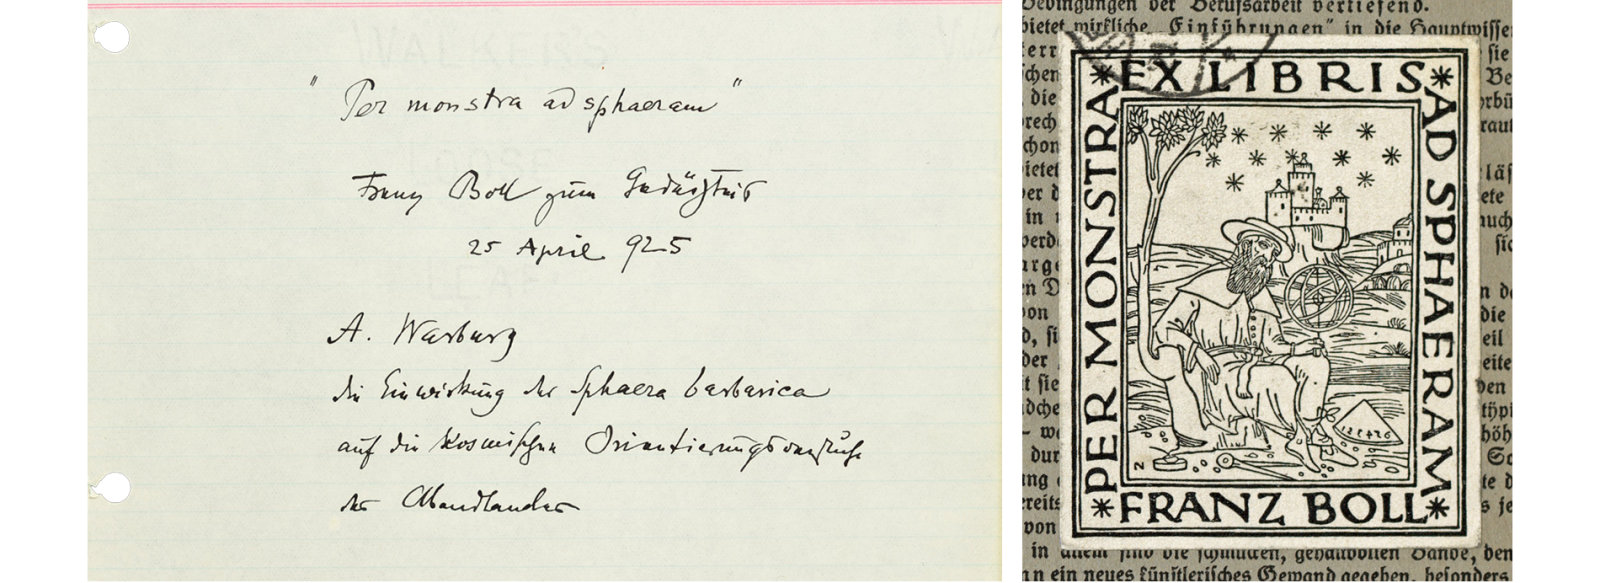 "Per monstra ad sphaeram"
Franz Boll zum Gedächtnis
25 April 925
A. Warburg
die Einwirkung der Sphaera barbarica
auf die kosmischen Orientierungsversuche
des Abendlandes
WALKER'S
LOOSE
LEAF
Bedingungen der Berufsarbeit vertiefend.
bietet wirkliche „Einführungen" in die Hauptwisse
EX LIBRIS
PER MONSTRA
AD SPHAERAM
FRANZ BOLL
in allem sind die schmucken, gehaltvollen Bände, den
ein neues künstlerisches Gewand gegeben, besonders